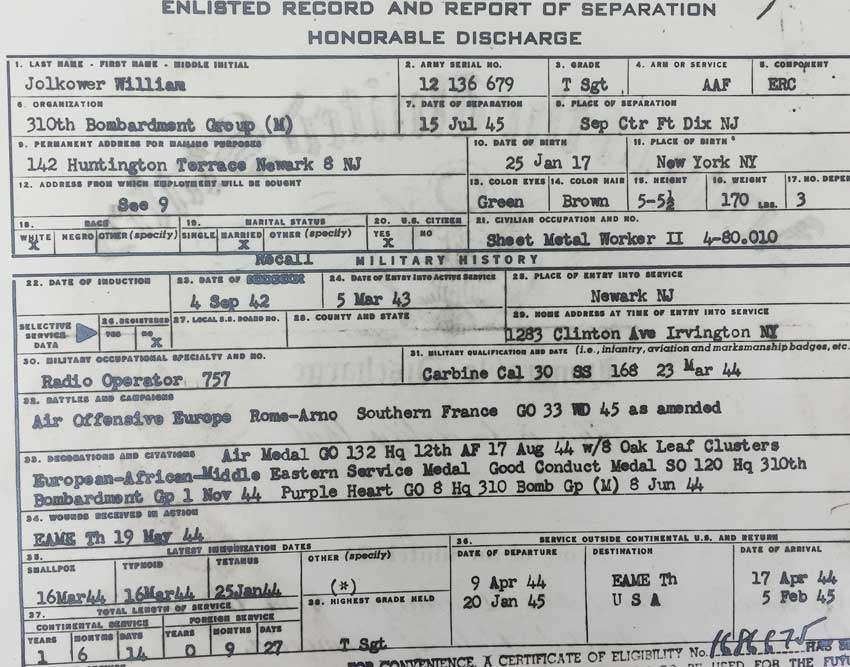 ENLISTED RECORD AND REPORT OF SEPARATION
HONORABLE DISCHARGE
1. LAST NAME - FIRST NAME - MIDDLE INITIAL 2. ARMY SERIAL NO. 3. GRADE 4. ARM OR SERVICE 5. COMPONENT
Jolkower William 12 136 679 T Sgt AAF ERC
6. ORGANIZATION 7. DATE OF SEPARATION 8. PLACE OF SEPARATION
310th Bombardment Group (M) 15 Jul 45 Sep Ctr Ft Dix NJ
9. PERMANENT ADDRESS FOR MAILING PURPOSES 10. DATE OF BIRTH 11. PLACE OF BIRTH
142 Huntington Terrace Newark 8 NJ 25 Jan 17 New York NY
12. ADDRESS FROM WHICH EMPLOYMENT WILL BE SOUGHT 13. COLOR EYES 14. COLOR HAIR 15. HEIGHT 16. WEIGHT 17. NO. DEPEN
See 9 Green Brown 5-5½ 170 LBS. 3
18. RACE 19. MARITAL STATUS 20. U.S. CITIZEN 21. CIVILIAN OCCUPATION AND NO.
WHITE NEGRO OTHER (specify) SINGLE MARRIED OTHER (specify) YES NO
X X X Sheet Metal Worker II 4-80.010
Recall MILITARY HISTORY
22. DATE OF INDUCTION 23. DATE OF 24. DATE OF ENTRY INTO ACTIVE SERVICE 25. PLACE OF ENTRY INTO SERVICE
4 Sep 42 5 Mar 43 Newark NJ
SELECTIVE SERVICE DATA 26. REGISTERED YES NO X 27. LOCAL S.S. BOARD NO. 28. COUNTY AND STATE 29. HOME ADDRESS AT TIME OF ENTRY INTO SERVICE
1283 Clinton Ave Irvington NY
30. MILITARY OCCUPATIONAL SPECIALTY AND NO. 31. MILITARY QUALIFICATION AND DATE (i.e., infantry, aviation and marksmanship badges, etc.
Radio Operator 757 Carbine Cal 30 SS 168 23 Mar 44
32. BATTLES AND CAMPAIGNS
Air Offensive Europe Rome-Arno Southern France GO 33 WD 45 as amended
33. DECORATIONS AND CITATIONS Air Medal GO 132 Hq 12th AF 17 Aug 44 w/8 Oak Leaf Clusters
European-African-Middle Eastern Service Medal Good Conduct Medal SO 120 Hq 310th
Bombardment Gp 1 Nov 44 Purple Heart GO 8 Hq 310 Bomb Gp (M) 8 Jun 44
34. WOUNDS RECEIVED IN ACTION
EAME Th 19 May 44
35. LATEST IMMUNIZATION DATES 36. SERVICE OUTSIDE CONTINENTAL U.S. AND RETURN
SMALLPOX TYPHOID TETANUS OTHER (specify) DATE OF DEPARTURE DESTINATION DATE OF ARRIVAL
16Mar44 16Mar44 25Jan44 (*) 9 Apr 44 EAME Th 17 Apr 44
20 Jan 45 U S A 5 Feb 45
37. TOTAL LENGTH OF SERVICE 38. HIGHEST GRADE HELD
CONTINENTAL SERVICE FOREIGN SERVICE
YEARS MONTHS DAYS YEARS MONTHS DAYS
1 6 14 0 9 27 T Sgt
FOR CONVENIENCE, A CERTIFICATE OF ELIGIBILITY No.